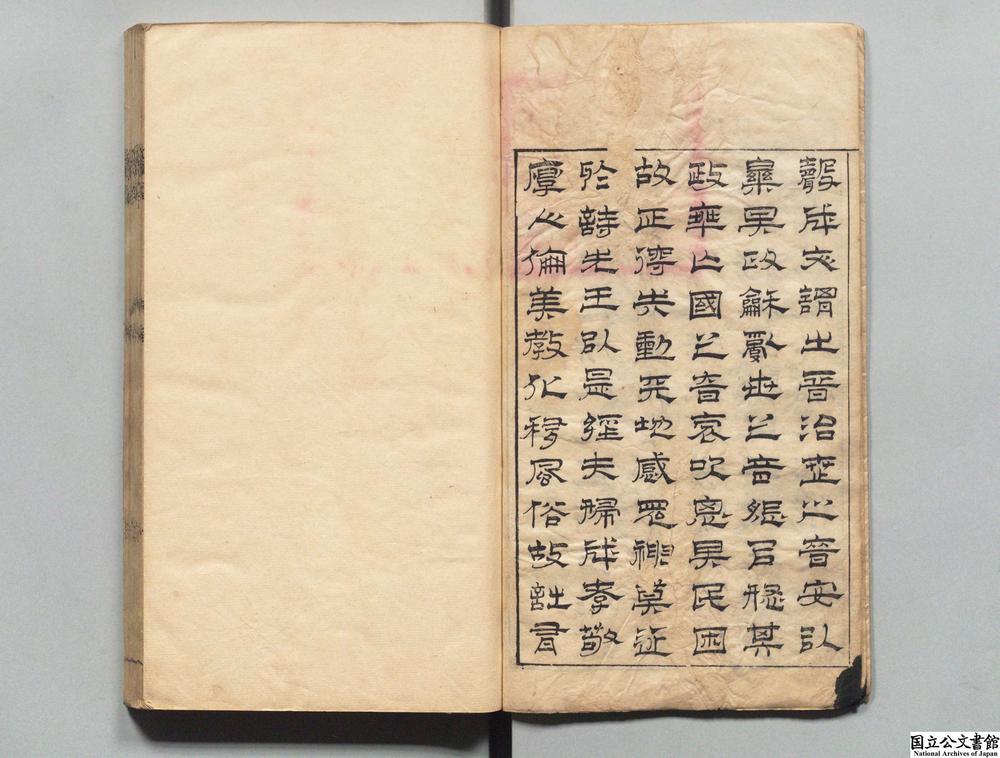 聲成文謂之音治世之音安以
樂其政龢亂世之音怨以怒其
政乖亡國之音哀以思其民困
故正得失動天地感鬼神莫近
於詩先王以是經夫婦成孝敬
厚人倫美教化移風俗故詩有
国立公文書館
National Archives of Japan